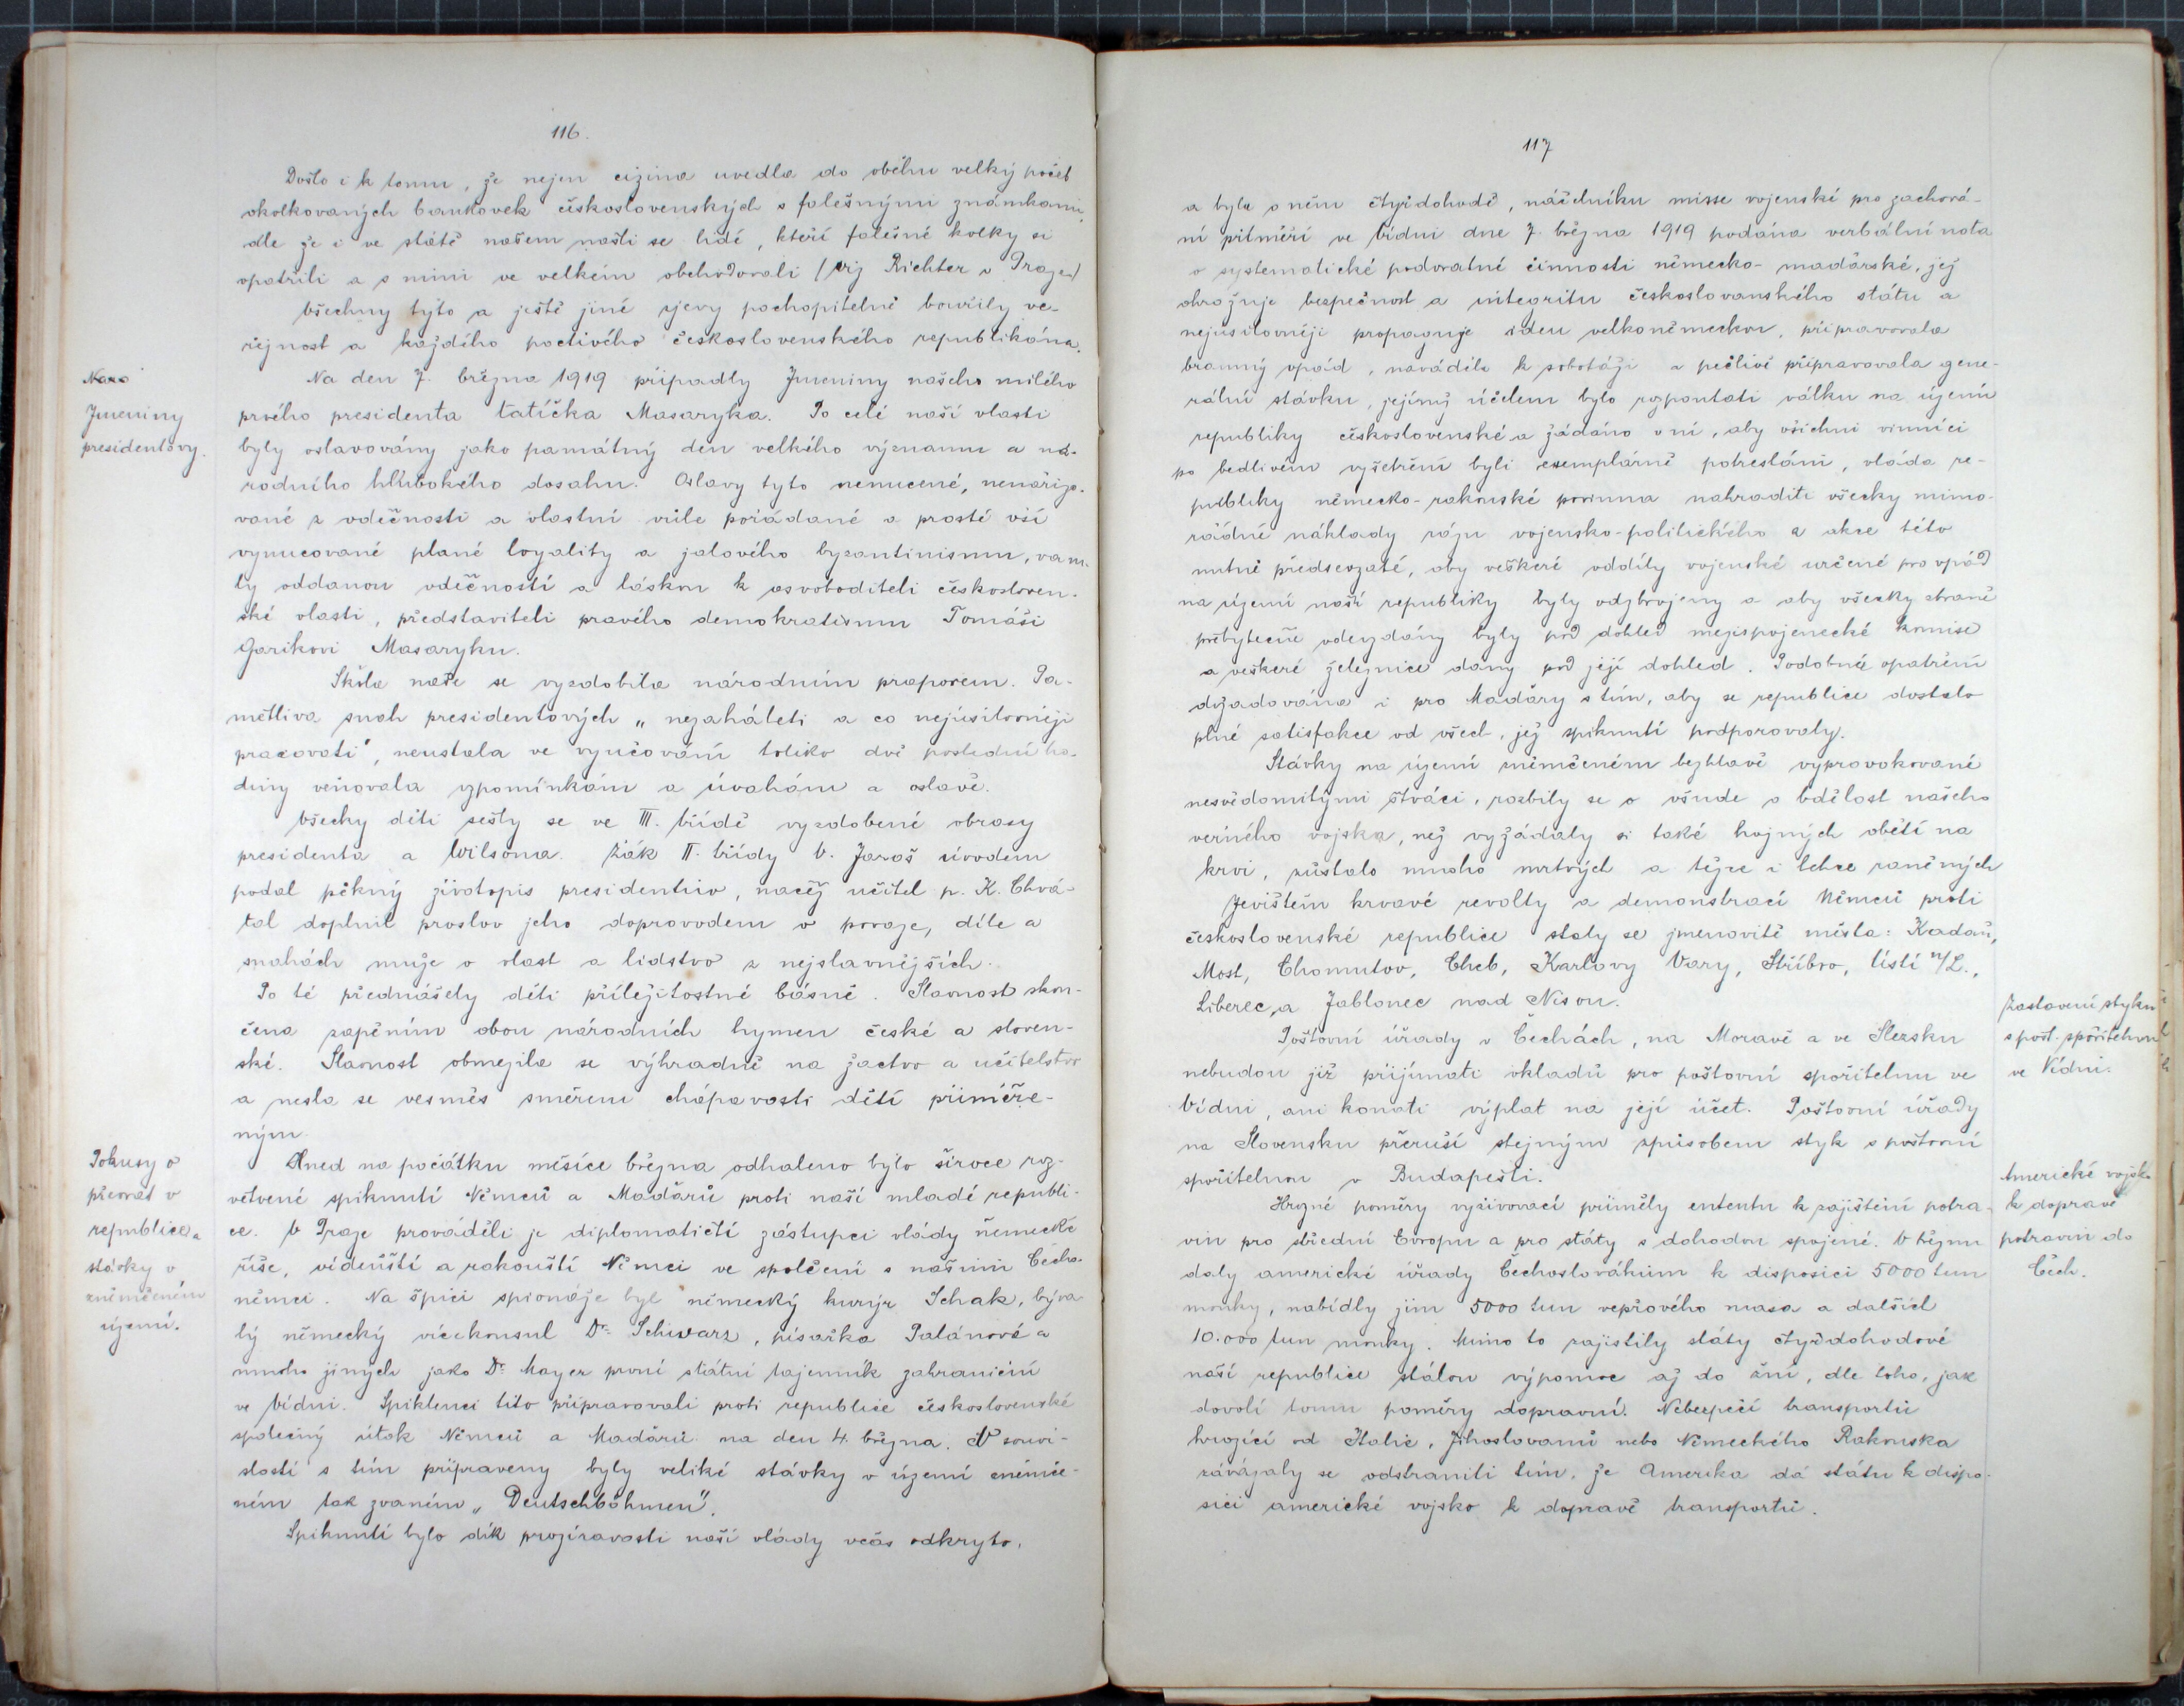 116.
Došlo i k tomu, že nejen cizina uvedla do oběhu velký počet
okolkovaných bankovek československých s falešnými známkami,
dle že i ve státě našem našli se lidé, kteří falešné kolky si
opatřili a s nimi ve velkém obchodovali (viz Richter v Praze)
Všechny tyto a ještě jiné zjevy pochopitelně bouřily ve-
řejnost a každého poctivého československého republikána.
Na den 7. března 1919 připadly Jmeniny našeho milého
Jmeniny
presidentovy.
prvého presidenta tatíčka Masaryka. Po celé naší vlasti
byly oslavovány jako památný den velkého významu a ná-
rodního hlubokého dosahu. Oslavy tyto nenucené, nenařizo-
vané z vděčnosti a vlastní vůle pořádané a prosté vší
vynucované plané loyality a jalového byzantinismu, vanu-
ly oddanou vděčností a láskou k osvoboditeli českosloven-
ské vlasti, představiteli pravého demokratismu Tomáši
Garikovi Masaryku.
Škola naše se vyzdobila národním praporem. Pa-
mětliva snah presidentových „nezaháleti a co nejúsilovněji
pracovati", neustala ve vyučování toliko dvě poslední ho-
diny věnovala vzpomínkám a úvahám a oslavě.
Všecky děti sešly se ve III. třídě vyzdobené obrazy
presidenta a Wilsona. Žák II. třídy V. Jaroš úvodem
podal pěkný životopis presidentův, načež učitel p. K. Chvá-
tal doplnil proslov jeho doprovodem o povaze, díle a
snahách muže o vlast a lidstvo z nejslavnějších.
Po té přednášely děti příležitostné básně. Slavnost skon-
čena zapěním obou národních hymen české a sloven-
ské. Slavnost obmezila se výhradně na žactvo a učitelstvo
a nesla se vesměs směrem chápavosti dětí přiměře-
ným.
Pokusy o
převrat v
republice a
stávky v
zněmčeném
území.
Hned na počátku měsíce března odhaleno bylo široce roz-
větvené spiknutí Němců a Maďarů proti naší mladé republi-
ce. V Praze prováděli je diplomatičtí zástupci vlády německé
říše, vídeňští a rakouští Němci ve spolčení s našimi Čecho-
němci. Na špici spionáže byl německý kurýr Schak, býva-
lý německý vicekonsul Dr. Schwarz, písařka Palánová a
mnoho jiných jako Dr. Mayer první státní tajemník zahraniční
ve Vídni. Spiklenci tito připravovali proti republice československé
společný útok Němců a Maďarů na den 4. března. V souvi-
slosti s tím připraveny byly veliké stávky v území zněmče-
ném tak zvaném „Deutschböhmen".
Spiknutí bylo dík prozíravosti naší vlády včas odkryto,
117
a byla o něm čtyřdohodě, náčelníku misse vojenské pro zachová-
ní příměří ve Vídni dne 7. března 1919 podána verbální nota
o systematické podvratné činnosti německo-maďarské, jež
ohrožuje bezpečnost a integritu československého státu a
nejusilovněji propaguje ideu velkoněmeckou, připravovala
branný vpád, naváděla k sabotáži a pečlivě připravovala gene-
rální stávku, jejímž účelem bylo rozpoutati válku na území
republiky československé a žádáno v ní, aby všichni vinníci
po bedlivém vyšetření byli exemplárně potrestáni, vláda re-
publiky německo-rakouské povinna nahraditi všecky mimo-
řádné náklady rázu vojensko-politického a akce této
nutně předsevzaté, aby veškeré oddíly vojenské určené pro vpád
na území naší republiky byly odzbrojeny a aby všecky zbraně
přebytečné odevzdány byly pod dohled mezispojenecké komise
a veškeré železnice dány pod její dohled. Podobná opatření
dožadována i pro Maďary s tím, aby se republice dostalo
plné satisfakce od všech, jež spiknutí podporovaly.
Stávky na území zněmčeném bezhlavě vyprovokované
nesvědomitými štváči, rozbily se o všude o bdělost našeho
věrného vojska, než vyžádaly si také hojných obětí na
krvi, zůstalo mnoho mrtvých a těžce i lehce raněných
Jevištěm krvavé revolty a demonstrací Němců proti
československé republice staly se jmenovitě města: Kadaň,
Most, Chomutov, Cheb, Karlovy Vary, Stříbro, Ústí n/L.,
Liberec, a Jablonec nad Nisou.
Zastavení styku
s pošt. spořitelnou
ve Vídni.
Poštovní úřady v Čechách, na Moravě a ve Slezsku
nebudou již přijímati vkladů pro poštovní spořitelnu ve
Vídni, ani konati výplat na její účet. Poštovní úřady
na Slovensku přeruší stejným způsobem styk s poštovní
spořitelnou v Budapešti.
Americké vojsko
k dopravě
potravin do
Čech.
Hrozné poměry vyživovací přiměly ententu k zajištění potra-
vin pro střední Evropu a pro státy s dohodou spojené. V březnu
daly americké úřady Čechoslovákům k disposici 5000 tun
mouky, nabídly jim 5000 tun vepřového masa a dalších
10.000 tun mouky. Mimo to zajistily státy čtyřdohodové
naší republice stálou výpomoc až do žní, dle toho, jak
dovolí tomu poměry dopravní. Nebezpečí transportů
hrozící od Italie, Jihoslovanů nebo Německého Rakouska
zavázaly se odstraniti tím, že Amerika dá státu k dispo-
sici americké vojsko k dopravě transportů.